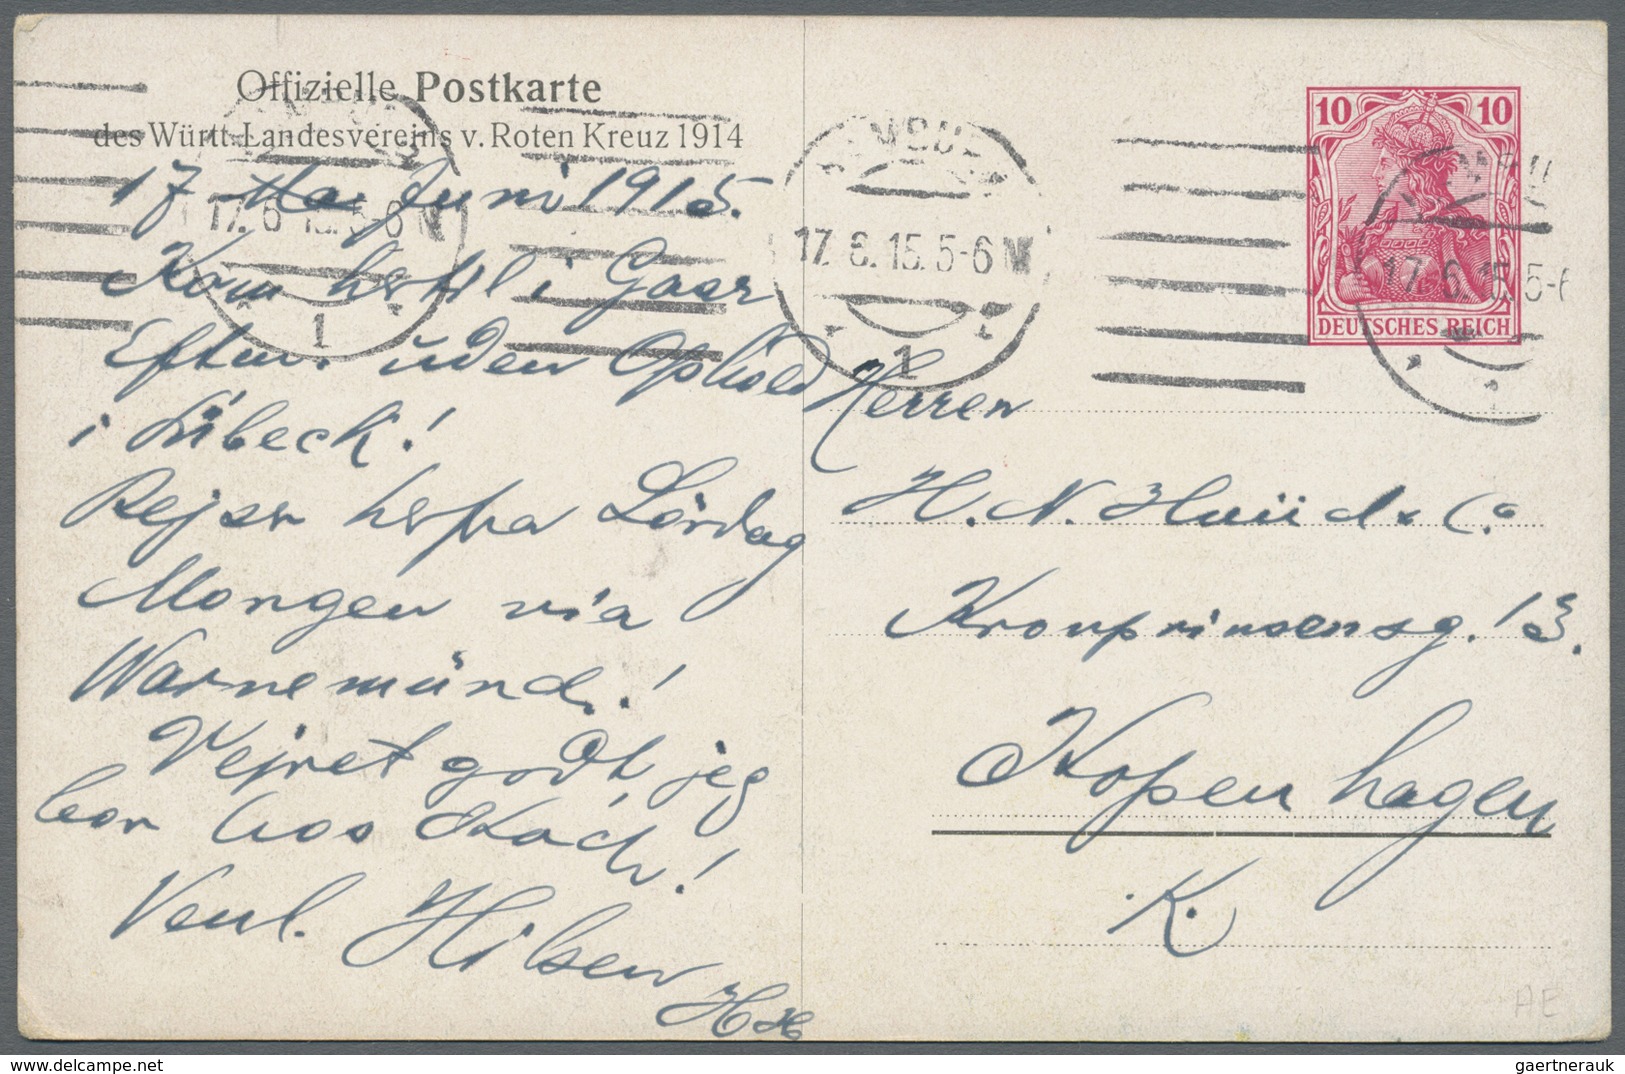 Offizielle Postkarte
des Württ. Landesvereins v. Roten Kreuz 1914
17 Juni 1915.
Kom hertil i Gaar
Eftm. uden Ophold
i Lübeck!
Rejser herfra Lördag
Morgen via
Warnemünde!
Vejret godt, jeg
bor hos Koch!
Venl. Hilsen
HH
17. 6. 15. 5-6 N
1
HAMBURG
17. 6. 15. 5-6 N
1
10 10
DEUTSCHES REICH
17. 6. 15. 5-6
Herren
H. N. & Co
Kronprinsensg. 13.
Kopenhagen
K.
AE
gaertnerauk